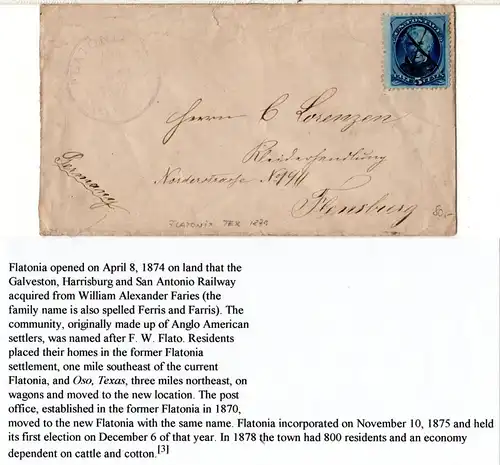 FLATONIA
U.S. POSTAGE
Herrn C Lorenzen
Kleiderhandlung
Norderstrasse
Flensburg
Germany
80,-
FLATONIA TEX 1879
Flatonia opened on April 8, 1874 on land that the
Galveston, Harrisburg and San Antonio Railway
acquired from William Alexander Faries (the
family name is also spelled Ferris and Farris). The
community, originally made up of Anglo American
settlers, was named after F. W. Flato. Residents
placed their homes in the former Flatonia
settlement, one mile southeast of the current
Flatonia, and Oso, Texas, three miles northeast, on
wagons and moved to the new location. The post
office, established in the former Flatonia in 1870,
moved to the new Flatonia with the same name. Flatonia incorporated on November 10, 1875 and held
its first election on December 6 of that year. In 1878 the town had 800 residents and an economy
dependent on cattle and cotton.[3]